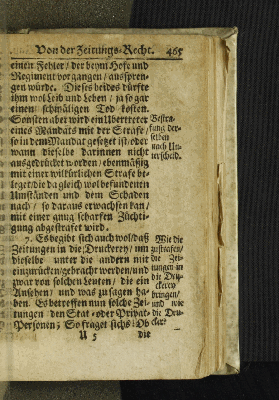 Von der Zeitungs-Recht. 465
einen Fehler / der beym Hofe und
Regiment vorgangen / ausspren-
gen würde. Dieses beides dürfte
ihm wol Leib und Leben / ja so gar
einen schmäligen Tod kosten.
Sonsten aber wird ein Ubertreter
eines Mandats mit der Strafe /
so in dem Mandat gesetzet ist: oder
wann dieselbe darinnen nicht
ausgedrücket worden / ebenmässig
mit einer wilkürlichen Strafe be-
leget / die da gleich wol befundenen
Umständen und dem Schaden
nach / so daraus erwachsen kan /
mit einer gnug scharfen Züchti-
gung abgestrafet wird.
Bestra-
fung der-
selben
nach Un-
terscheid.
7. Es begibt sich auch wol / daß
Zeitungen in die Druckerey / um
dieselbe unter die andern mit
einzurücken / gebracht werden / und
zwar von solchen Leuten / die ein
Ansehen / und was zu sagen ha-
ben. Es betreffen nun solche Zei-
tungen den Stat- oder Privat-
Personen; So fraget sichs: Ob
Wie die
zustrafen /
die Zei-
tungen in
die Dru-
ckerey
bringen /
und wie
die Dru-
cker?
U 5
die